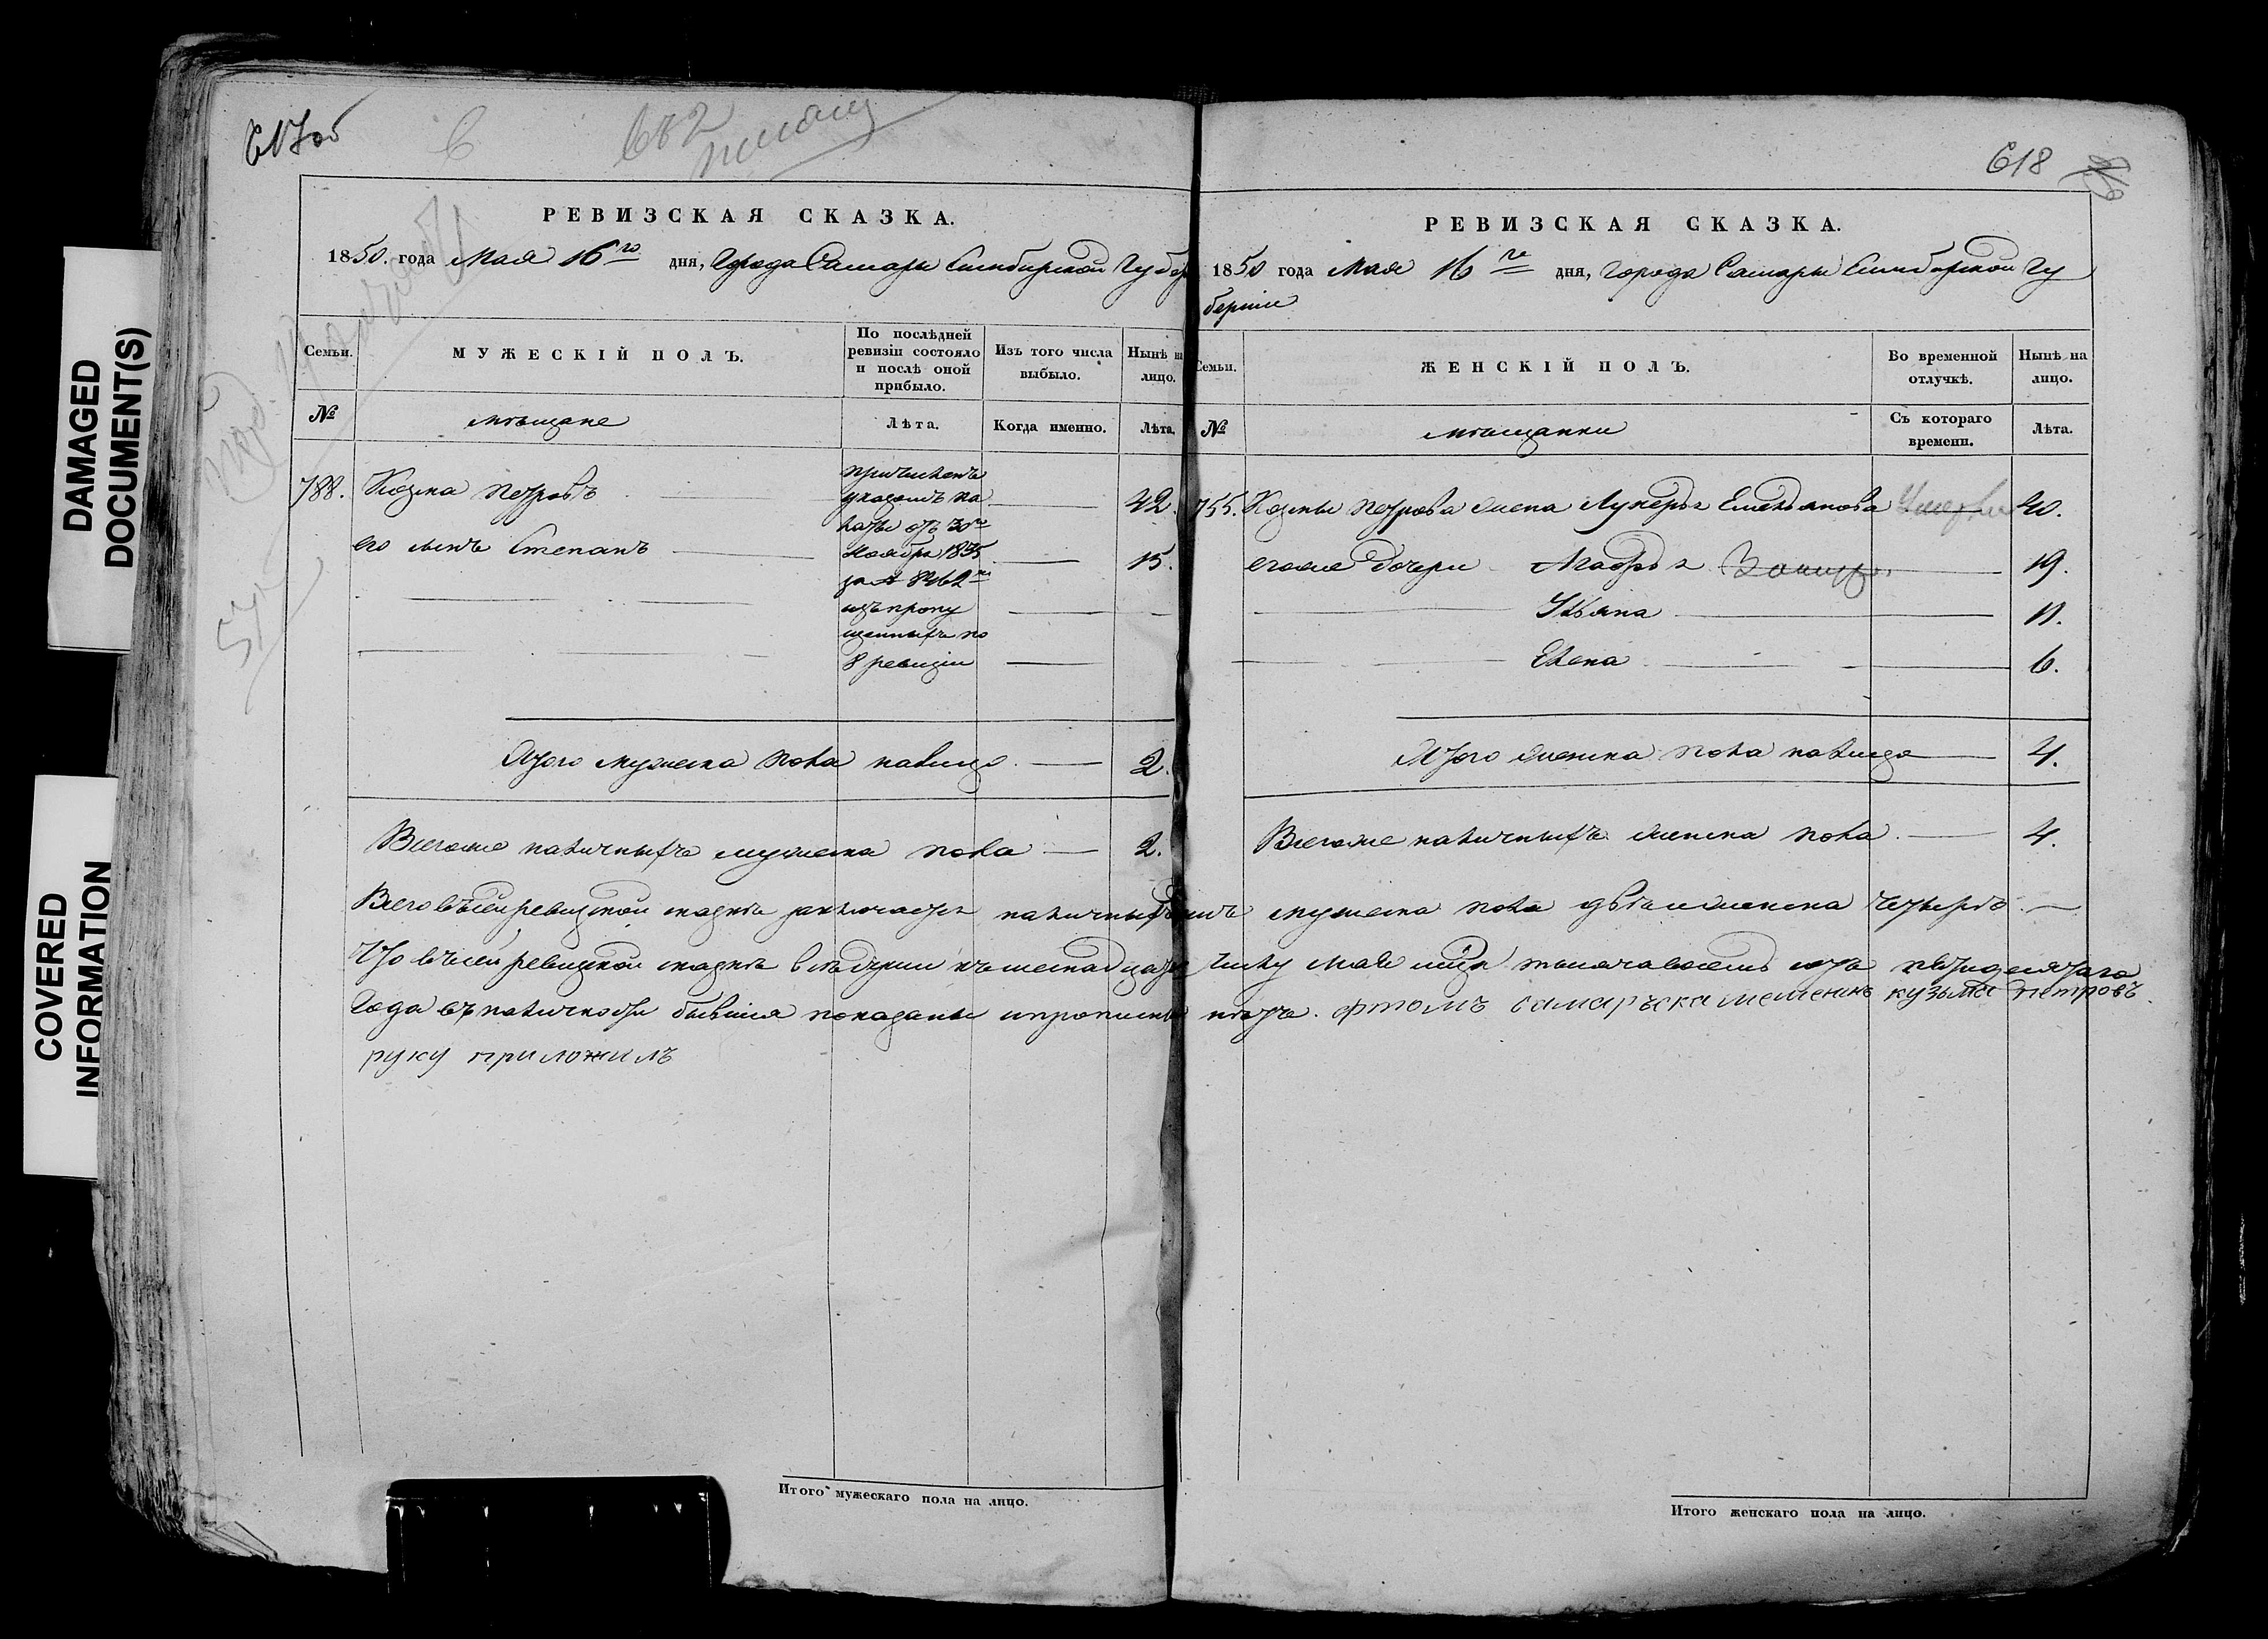 617об
618
РЕВИЗСКАЯ СКАЗКА.
1850. года Мая 16го дня, Города Самары Симбирской Губер
Семьи.
МУЖЕСКІЙ ПОЛЪ.
По послѣдней ревизіи состояло и послѣ оной прибыло.
Изъ того числа выбыло.
Нынѣ на лицо.
№
мѣщане
Лѣта.
Когда именно.
Лѣта.
788. Козма Петровъ 42.
его сынъ Степанъ 15.
причисленъ
указомъ па
латы отъ 30го
Ноября 1835
за № 8462м
изъ пропу
щенныхъ по
8 ревизіи
Итого мужеска пола налицо 2.
Всегоже наличныхъ мужеска пола 2.
РЕВИЗСКАЯ СКАЗКА.
1850 года Мая 16го дня, Города Самары Симбирской Гу
берніи
Семьи.
ЖЕНСКІЙ ПОЛЪ.
Во временной отлучкѣ.
Нынѣ на лицо.
№
мѣщанки
Съ котораго времени.
Лѣта.
755. Козмы Петрова жена Лукерья Емельянова 40.
егоже дочери Мавра 19.
Ульяна 11.
Елена 6.
Итого женска пола налицо 4.
Всегоже наличныхъ женска пола 4.
Всего въ сей ревизской сказкѣ заключается наличныхъ душъ мужеска пола двѣ и женска четыре
Что въ сей ревизской сказкѣ всѣ души къ шестнадцатому числу мая мѣсяца тысяча восемь сотъ пятидесятаго
Года въ наличности бывшія показаны и прописныхъ нѣтъ. фтомъ самаръска мещенинъ кузьма петровъ
руку приложилъ
Итого мужескаго пола на лицо.
Итого женскаго пола на лицо.
DAMAGED DOCUMENT(S)
COVERED INFORMATION